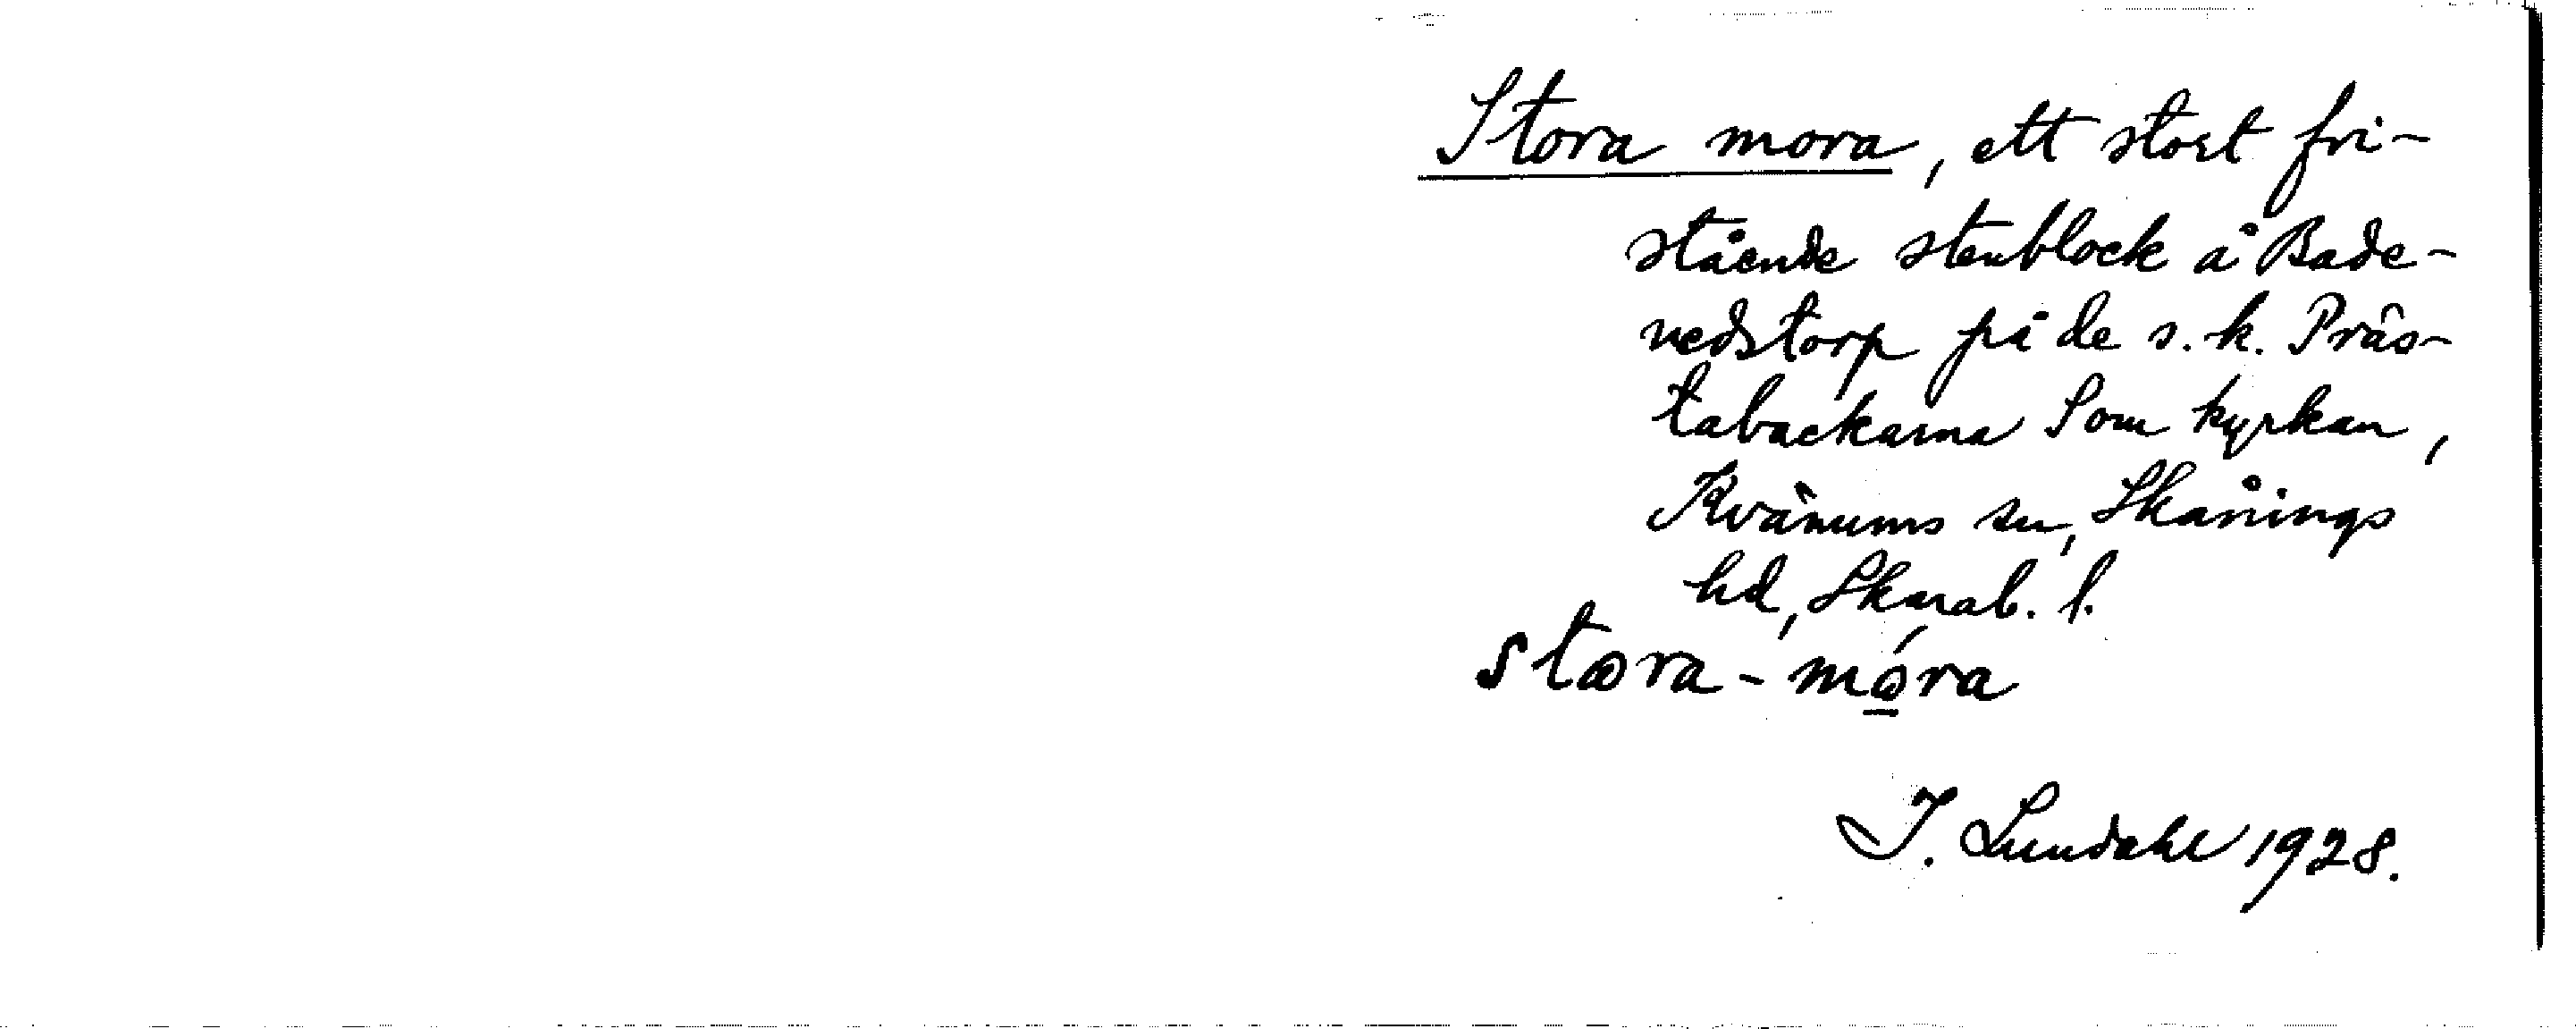 Stora mora, ett stort fri-
stående stenblock å Bade-
nedstorp på de s.k. Präs-
tabackarna Som kyrkan,
Kvänums sn, Skånings
hd, Skarab. l.
stora-móra
J. Lundahl 1928.